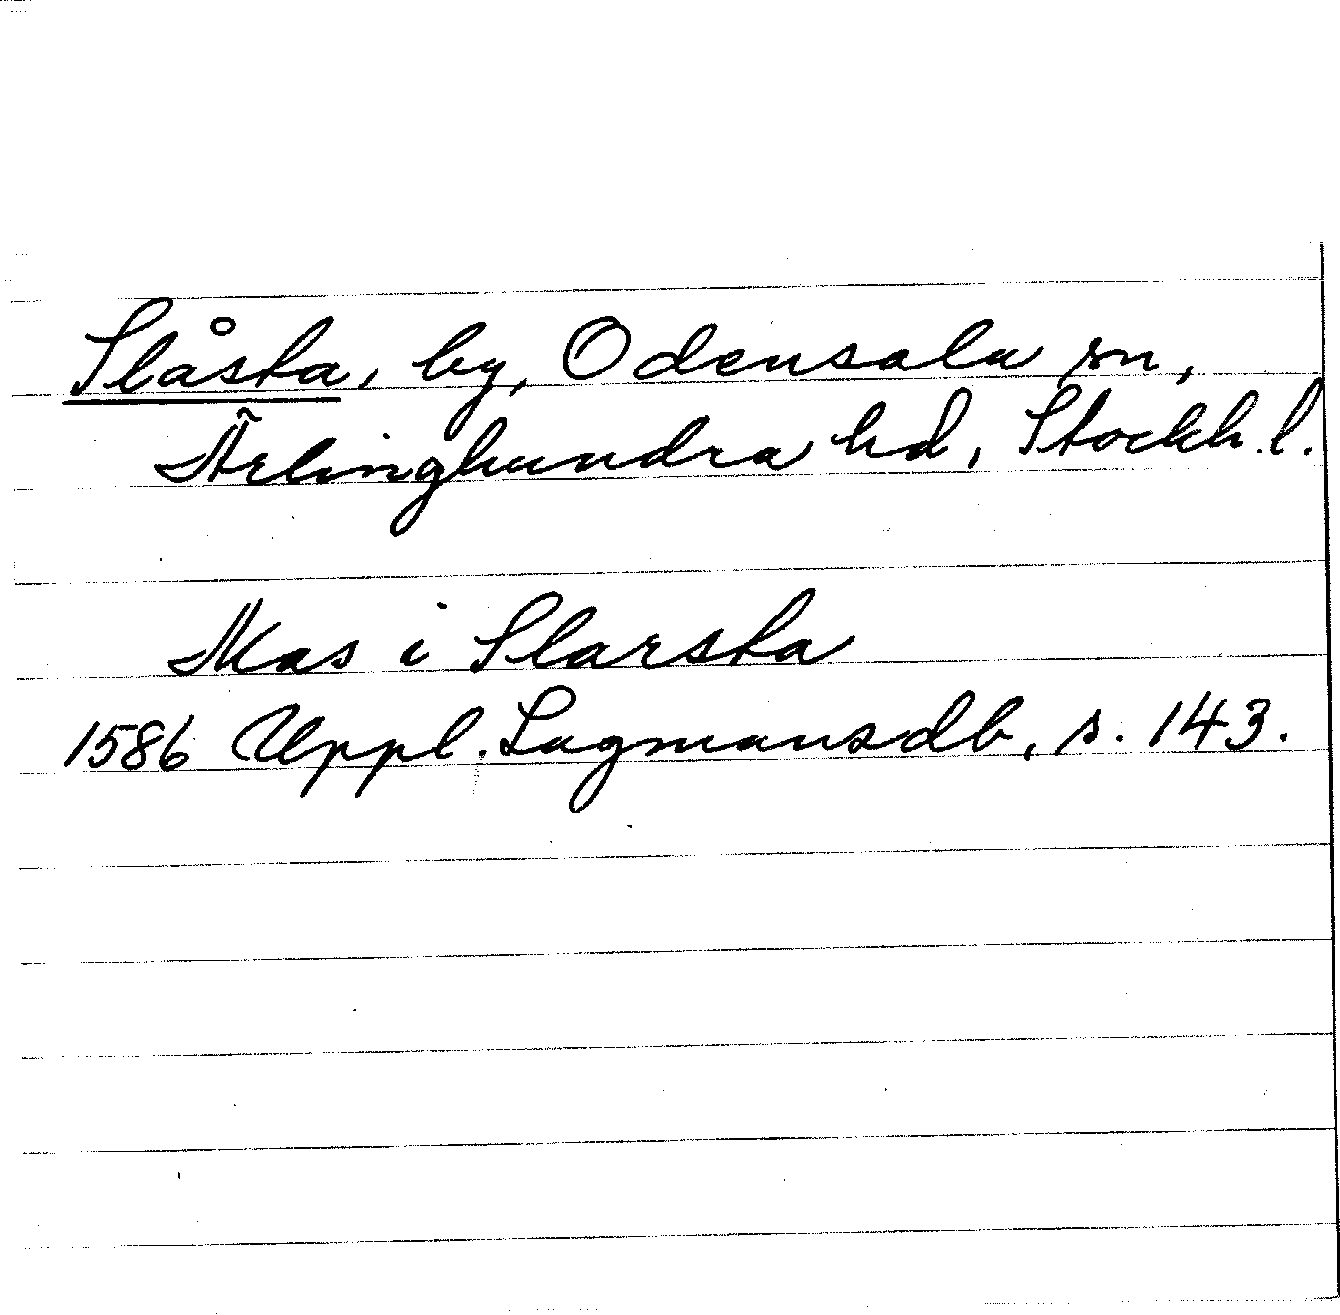 Slåsta, by, Odensala sn,
Ärlinghundra hd, Stockh. l.
Mas i Slarsta
1586 Uppl. Lagmansdb, s. 143.